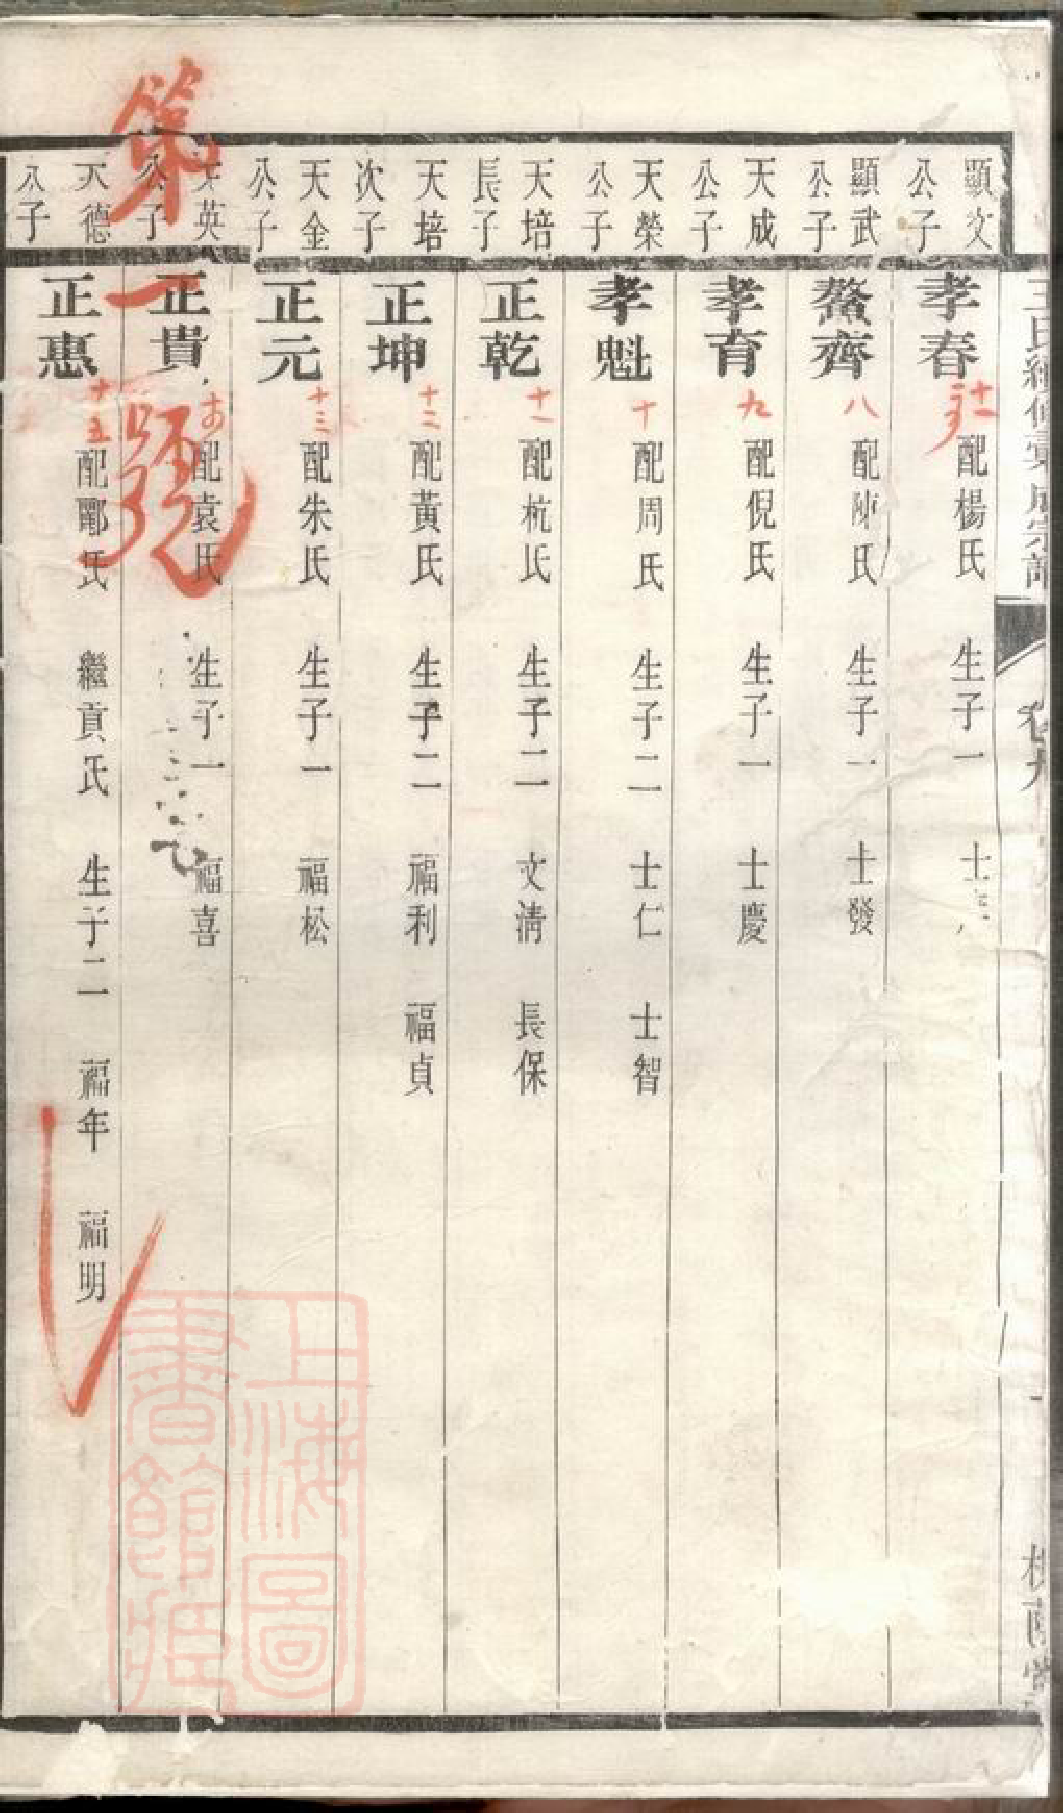 顯文公子
孝春
配楊氏 生子一
顯武公子
鰲齊
八
配陳氏 生子一 士發
天成公子
孝育
九
配倪氏 生子一 士慶
天榮公子
孝魁
十
配周氏 生子二 士仁 士智
天培長子
正乾
十一
配杭氏 生子二 文清 長保
天培次子
正坤
十二
配黃氏 生子二 福利 福貞
天金公子
正元
十三
配朱氏 生子一 福松
天英公子
正貴
十四
配袁氏 生子一 福喜
天德公子
正惠
十五
配鄭氏 繼貢氏 生子二 福年 福明
第一號
上海圖書館藏